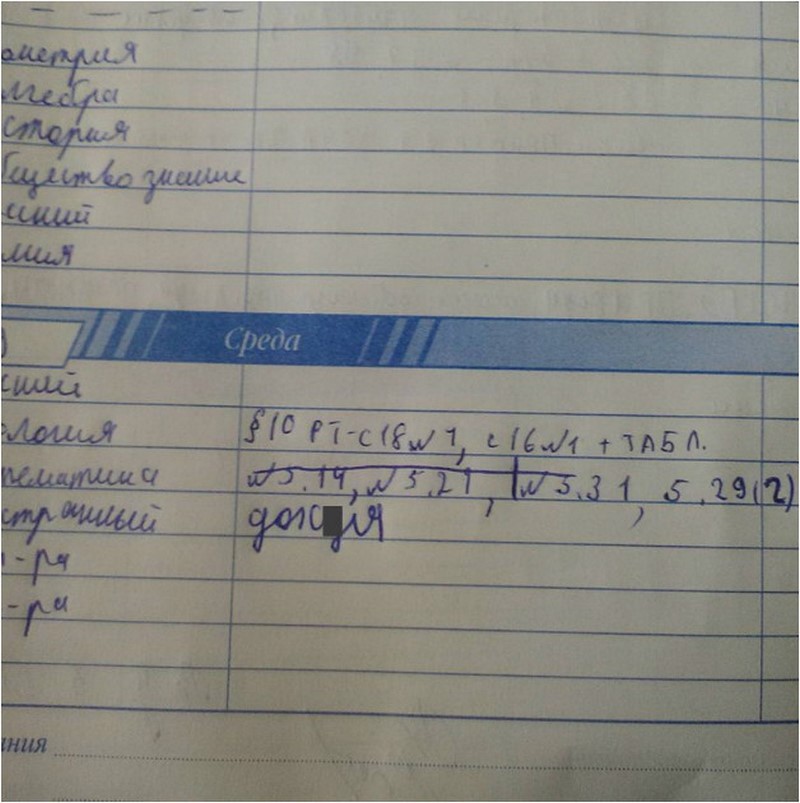 ометрия
лгебра
стория
бществознание
сский
имия
Среда
сский
логия §10 РТ-с18№1, с16№1 + ТАБЛ.
тематика №5.19, №5.21, №5.31, 5.29(2)
странный
-ра
-ра
ния